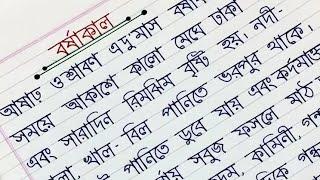 বর্ষাকাল
আষাঢ় ও শ্রাবণ এ দু মাস বর্ষা
সময়ে আকাশে কালো মেঘে ঢাকা
এবং সারাদিন রিমঝিম বৃষ্টি হয়। নদী-
লা, খাল-বিল পানিতে ভরপুর থাকে।
পানিতে ডুবে যায় এবং কর্দমাক্ত
সবুজ ফসলে মাঠ
কামিনী,